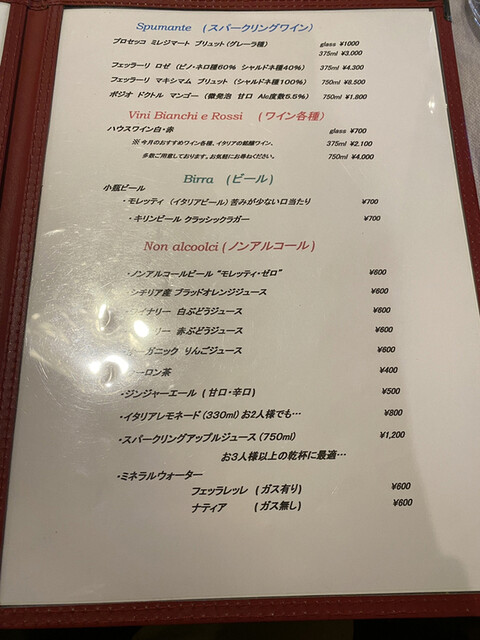 Spumante (スパークリングワイン)
プロセッコ ミレジマート ブリュット (グレーラ種) glass ¥1000
375ml ¥3,000
フェッラーリ ロゼ (ピノ・ネロ種60% シャルドネ種40%) 375ml ¥4,300
フェッラーリ マキシマム ブリュット (シャルドネ種100%) 750ml ¥8,500
ポジオ ドクトル マンゴー (微発泡 甘口 Alc度数5.5%) 750ml ¥1,800
Vini Bianchi e Rossi (ワイン各種)
ハウスワイン白・赤 glass ¥700
※ 今月のおすすめワイン各種、イタリアの銘醸ワイン、 375ml ¥2,100
多数ご用意しております。お気軽にお尋ねください。 750ml ¥4,000
Birra (ビール)
小瓶ビール
・モレッティ (イタリアビール) 苦みが少ない口当たり ¥700
・キリンビール クラッシックラガー ¥700
Non alcoolci (ノンアルコール)
・ノンアルコールビール “モレッティ・ゼロ” ¥600
・シチリア産 ブラッドオレンジジュース ¥600
ワイナリー 白ぶどうジュース ¥600
リー 赤ぶどうジュース ¥600
オーガニック りんごジュース ¥600
ーロン茶 ¥400
・ジンジャーエール (甘口・辛口) ¥500
・イタリアレモネード (330ml) お2人様でも… ¥800
・スパークリングアップルジュース (750ml) ¥1,200
お3人様以上の乾杯に最適…
・ミネラルウォーター
フェッラレッレ (ガス有り) ¥600
ナティア (ガス無し) ¥600